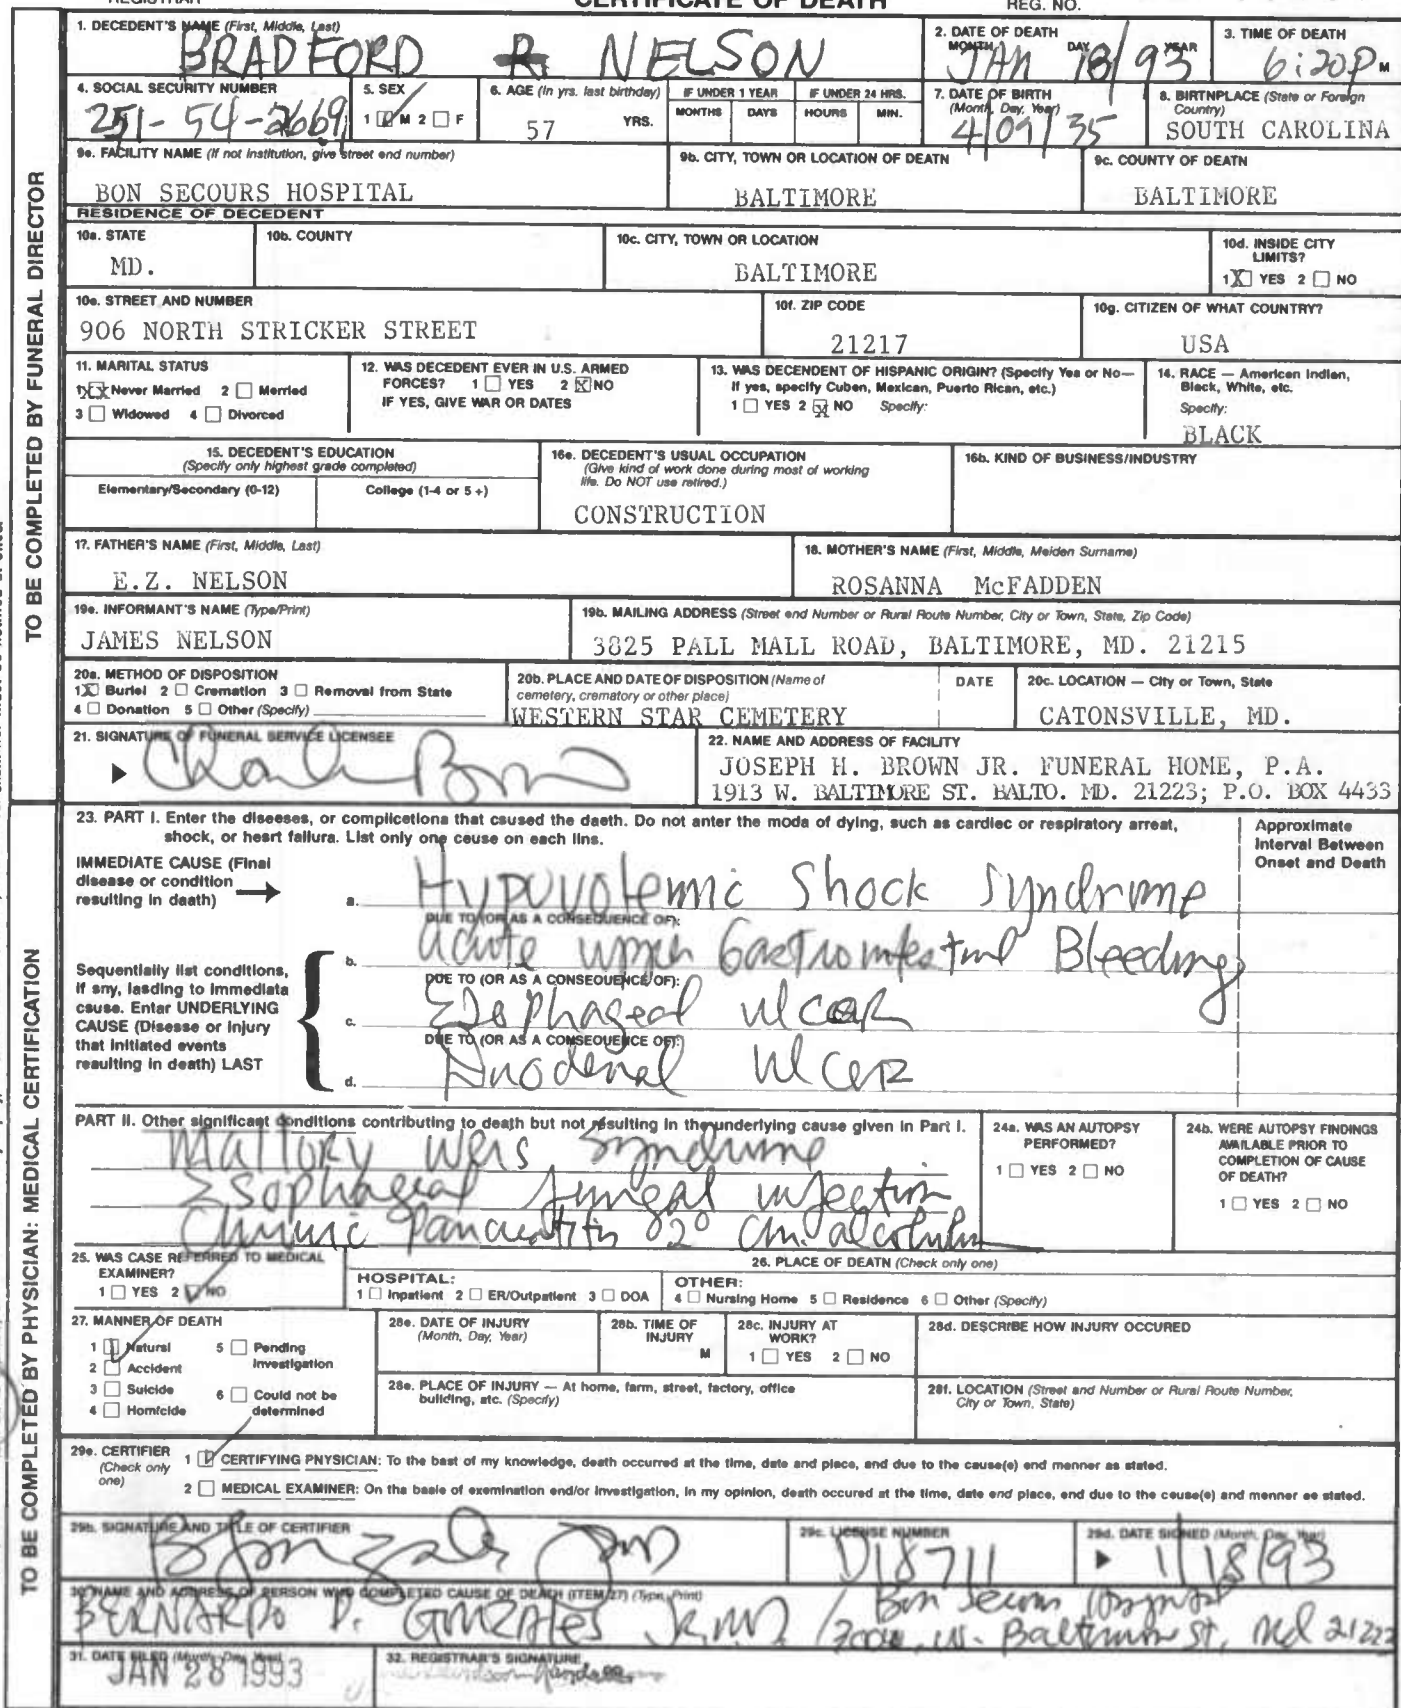 REGISTRAR CERTIFICATE OF DEATH REG. NO.
1. DECEDENT'S NAME (First, Middle, Last)
BRADFORD R NELSON
2. DATE OF DEATH
MONTH DAY YEAR
JAN 18/93
3. TIME OF DEATH
6:20P M
4. SOCIAL SECURITY NUMBER
251-54-2669
5. SEX
1 ☑ M 2 ☐ F
6. AGE (In yrs. last birthday)
57 YRS.
IF UNDER 1 YEAR
MONTHS DAYS
IF UNDER 24 HRS.
HOURS MIN.
7. DATE OF BIRTH
(Month, Day, Year)
4/09/35
8. BIRTNPLACE (State or Foreign
Country)
SOUTH CAROLINA
9e. FACILITY NAME (If not institution, give street end number)
BON SECOURS HOSPITAL
9b. CITY, TOWN OR LOCATION OF DEATN
BALTIMORE
9c. COUNTY OF DEATN
BALTIMORE
RESIDENCE OF DECEDENT
10a. STATE
MD.
10b. COUNTY
10c. CITY, TOWN OR LOCATION
BALTIMORE
10d. INSIDE CITY
LIMITS?
1 ☒ YES 2 ☐ NO
10e. STREET AND NUMBER
906 NORTH STRICKER STREET
10f. ZIP CODE
21217
10g. CITIZEN OF WHAT COUNTRY?
USA
11. MARITAL STATUS
1 ☒ Never Married 2 ☐ Merried
3 ☐ Widowed 4 ☐ Divorced
12. WAS DECEDENT EVER IN U.S. ARMED
FORCES? 1 ☐ YES 2 ☒ NO
IF YES, GIVE WAR OR DATES
13. WAS DECENDENT OF HISPANIC ORIGIN? (Specify Yes or No—
If yes, specify Cuben, Mexican, Puerto Rican, etc.)
1 ☐ YES 2 ☒ NO Specify:
14. RACE — American Indlen,
Black, White, etc.
Specify:
BLACK
15. DECEDENT'S EDUCATION
(Specify only highest grade completed)
Elementary/Secondary (0-12) College (1-4 or 5 +)
16e. DECEDENT'S USUAL OCCUPATION
(Give kind of work done during most of working
life. Do NOT use retired.)
CONSTRUCTION
16b. KIND OF BUSINESS/INDUSTRY
17. FATHER'S NAME (First, Middle, Last)
E.Z. NELSON
18. MOTHER'S NAME (First, Middle, Meiden Surname)
ROSANNA McFADDEN
19e. INFORMANT'S NAME (Type/Print)
JAMES NELSON
19b. MAILING ADDRESS (Street end Number or Rural Route Number, City or Town, State, Zip Code)
3825 PALL MALL ROAD, BALTIMORE, MD. 21215
20a. METHOD OF DISPOSITION
1 ☒ Buriel 2 ☐ Cremation 3 ☐ Removal from State
4 ☐ Donation 5 ☐ Other (Specify)
20b. PLACE AND DATE OF DISPOSITION (Name of
cemetery, crematory or other place)
WESTERN STAR CEMETERY
DATE
20c. LOCATION — City or Town, State
CATONSVILLE, MD.
21. SIGNATURE OF FUNERAL SERVICE LICENSEE
22. NAME AND ADDRESS OF FACILITY
JOSEPH H. BROWN JR. FUNERAL HOME, P.A.
1913 W. BALTIMORE ST. BALTO. MD. 21223; P.O. BOX 4433
TO BE COMPLETED BY FUNERAL DIRECTOR
23. PART I. Enter the diseeses, or complicetions that caused the daeth. Do not anter the moda of dying, such as cardiec or respiratory arreat,
shock, or hesrt failura. List only one ceuse on each lins.
Approximate
Interval Between
Onset and Death
IMMEDIATE CAUSE (Final
disease or condition
resulting in death)
a. Hypovolemic Shock Syndrome
DUE TO (OR AS A CONSEQUENCE OF):
b. acute upper Gastrointestinal Bleeding
DUE TO (OR AS A CONSEOUENCE OF):
c. Esophageal ulcer
DUE TO (OR AS A COMSEOUENCE OF):
d. Duodenal Ulcer
Sequentially list conditions,
If sny, lasding to Immediata
csuse. Enter UNDERLYING
CAUSE (Disesse or Injury
that Initiated events
resulting in death) LAST
PART II. Other significant conditions contributing to death but not resulting in the underlying cause given in Part I.
Mallory Weis Syndrome
Esophageal fungal infection
Chronic Pancreatitis 2° Chr. alcoholism
24a. WAS AN AUTOPSY
PERFORMED?
1 ☐ YES 2 ☐ NO
24b. WERE AUTOPSY FINDINGS
AVAILABLE PRIOR TO
COMPLETION OF CAUSE
OF DEATH?
1 ☐ YES 2 ☐ NO
25. WAS CASE REFERRED TO MEDICAL
EXAMINER?
1 ☐ YES 2 ☑ NO
26. PLACE OF DEATN (Check only one)
HOSPITAL:
1 ☐ Inpatient 2 ☐ ER/Outpatient 3 ☐ DOA
OTHER:
4 ☐ Nursing Home 5 ☐ Residence 6 ☐ Other (Specify)
27. MANNER OF DEATH
1 ☑ Natural 5 ☐ Pending
Investigation
2 ☐ Accident
3 ☐ Suicide 6 ☐ Could not be
determined
4 ☐ Homicide
28e. DATE OF INJURY
(Month, Day, Year)
28b. TIME OF
INJURY
M
28c. INJURY AT
WORK?
1 ☐ YES 2 ☐ NO
28d. DESCRIBE HOW INJURY OCCURED
28e. PLACE OF INJURY — At home, farm, street, factory, office
building, atc. (Specify)
28f. LOCATION (Street and Number or Rural Route Number,
City or Town, State)
29e. CERTIFIER
(Check only
one)
1 ☑ CERTIFYING PNYSICIAN: To the bast of my knowledge, death occurred at the time, date and place, and due to the cause(e) end menner as stated.
2 ☐ MEDICAL EXAMINER: On tha basle of exemination end/or investigation, in my opinion, death occured at the time, date end place, end due to the ceuse(e) and menner ee stated.
29b. SIGNATURE AND TITLE OF CERTIFIER
29c. LICENSE NUMBER
D18711
29d. DATE SIGNED (Month, Day, Year)
1/18/93
30. NAME AND ADDRESS OF PERSON WHO COMPLETED CAUSE OF DEATH (ITEM 27) (Type, Print)
BERNARDO D. GONZALES Jr. M.D. / Bon Secours Hospital
2000 W. Baltimore St, Md 21223
31. DATE FILED (Month, Day, Year)
JAN 28 1993
32. REGISTRAR'S SIGNATURE
TO BE COMPLETED BY PHYSICIAN: MEDICAL CERTIFICATION